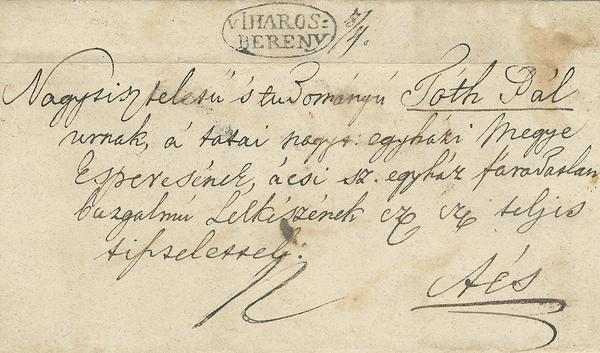 VIHAROS-
BERENY 3/4.
Nagytisztelesű 's tudományú Tóth Pál
urnak, a tatai nagyt. egyházi Megye
Esperesének, ácsi sz. egyház fáradatlan
buzgalmú Lelkészének teljes
tisztelettel.
Ács